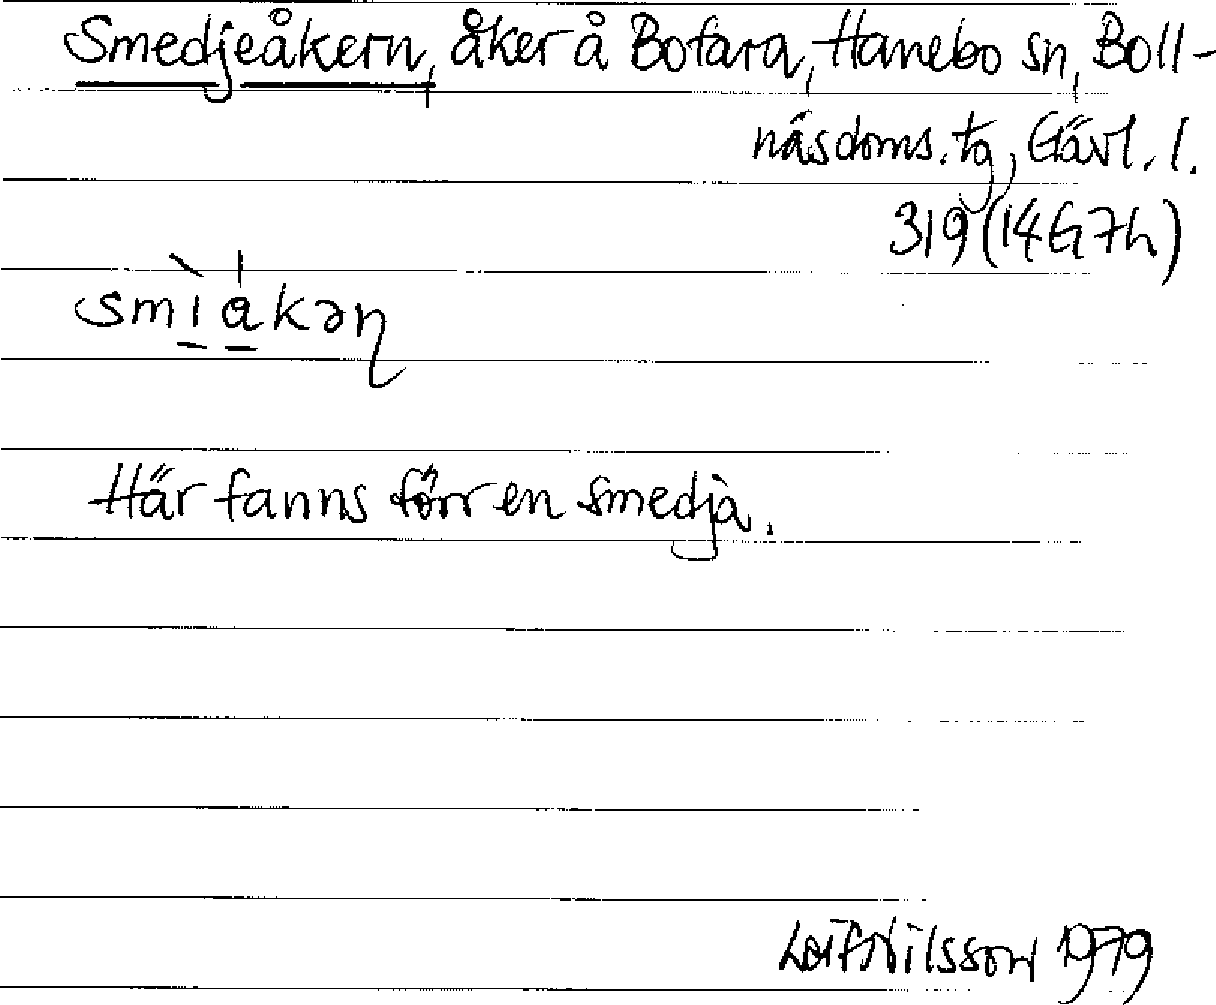 Smedjeåkern, åker å Bofara, Hanebo sn, Boll-
näs doms. tg, Gävl. l.
319 (14G7h)
smìa̍kəṇ
Här fanns förr en smedja.
Leif Nilsson 1979